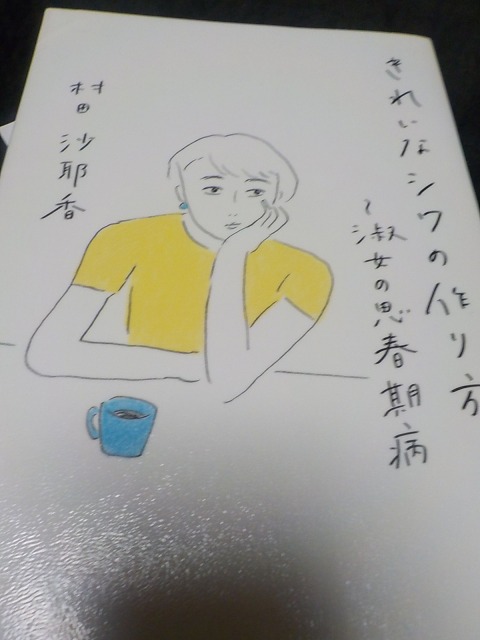 きれいなシワの作り方
~淑女の思春期病
村田 沙耶香